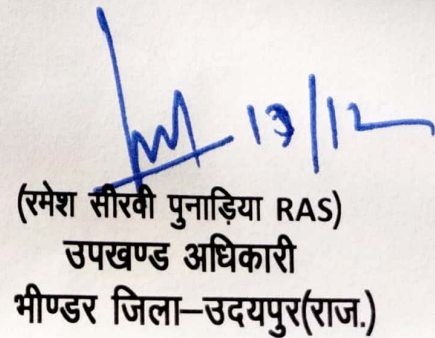 13/12
(रमेश सीरवी पुनाड़िया RAS)
उपखण्ड अधिकारी
भीण्डर जिला–उदयपुर(राज.)